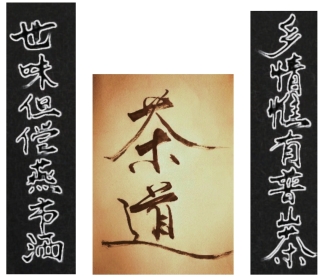 多情惟有普山茶
茶道
世味但偿燕市酒